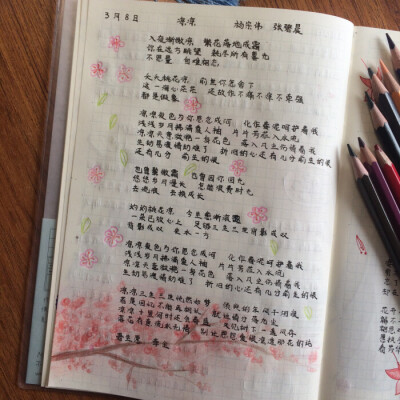 3月8日 凉凉 杨宗纬 张碧晨
入夜渐微凉 繁花落地成霜
你在远方眺望 耗尽所有暮光
不思量 自难相忘
夭夭桃花凉 前世你怎舍下
这一海心茫茫 还故作不痛不痒不牵强
都是假象
凉凉夜色为你思念成河 化作春泥呵护着我
浅浅岁月拂满爱人袖 片片芳菲入水流
凉凉天意潋滟一身花色 落入凡尘伤情着我
生劫易渡情劫难了 折旧的心还有几分前生的恨
还有几分 前生的恨
也曾鬓微霜 也曾因你回光
悠悠岁月漫长 怎能浪费时光
去流浪 去换成长
灼灼桃花凉 今生愈渐滚烫
一朵已放心上 足够三生三世背影成双
背影成双 在水一方
凉凉夜色为你思念成河 化作春泥呵护着我
浅浅岁月拂满爱人袖 片片芳菲入水流
凉凉天意潋滟一身花色 落入凡尘伤情着我
生劫易渡情劫难了 折旧的心还有几分前生的恨
凉凉三生三世恍然如梦 须臾的年风干泪痕
若是回忆不能再相认 就让情分落九尘
凉凉十里何时还会春盛 又见树下一盏风存
落花有意流水无情 别让恩怨爱恨凉透那花的纯
吾生愿 牵尘